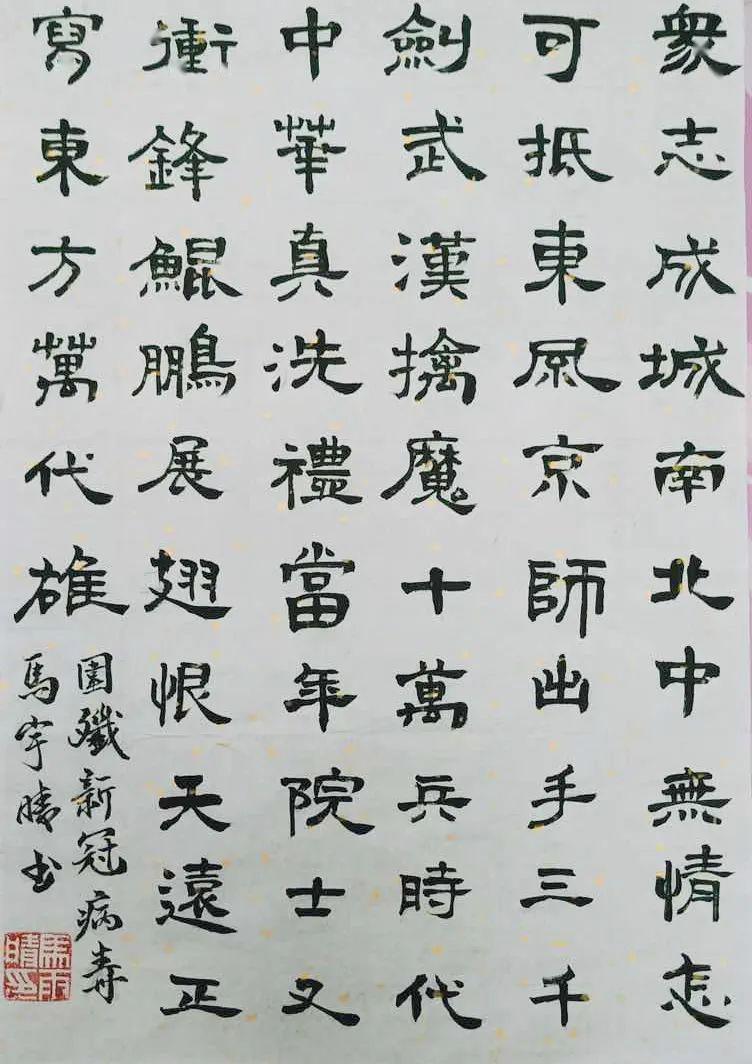 衆志成城南北中無情志
可抵東風京師出手三千
劍武漢擒魔十萬兵時代
中華真洗禮當年院士又
衝鋒鯤鵬展翅恨天遠正
寫東方萬代雄
圍殲新冠病毒
馬雨晴书
馬雨晴印